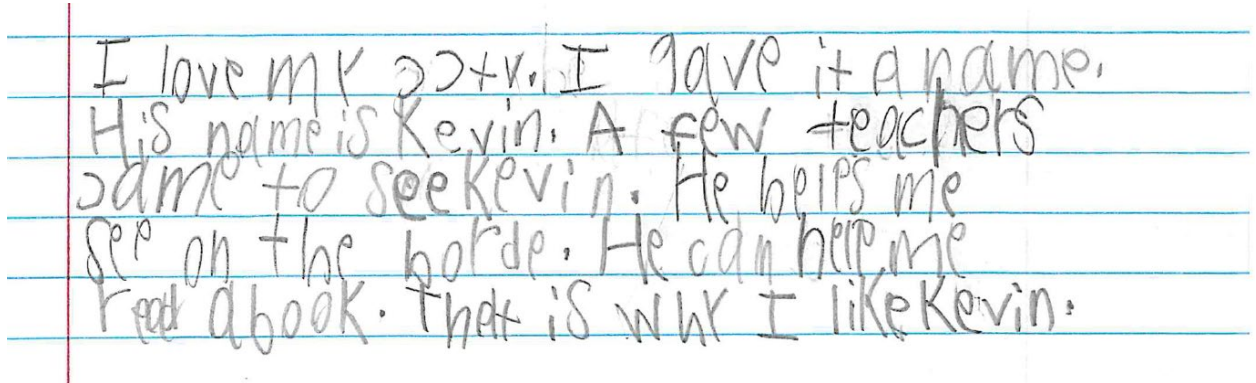 I love my CCTV. I gave it a name.
His name is Kevin. A few teachers
came to see Kevin. He helps me
see on the borde. He can help me
read a book. That is why I like Kevin.